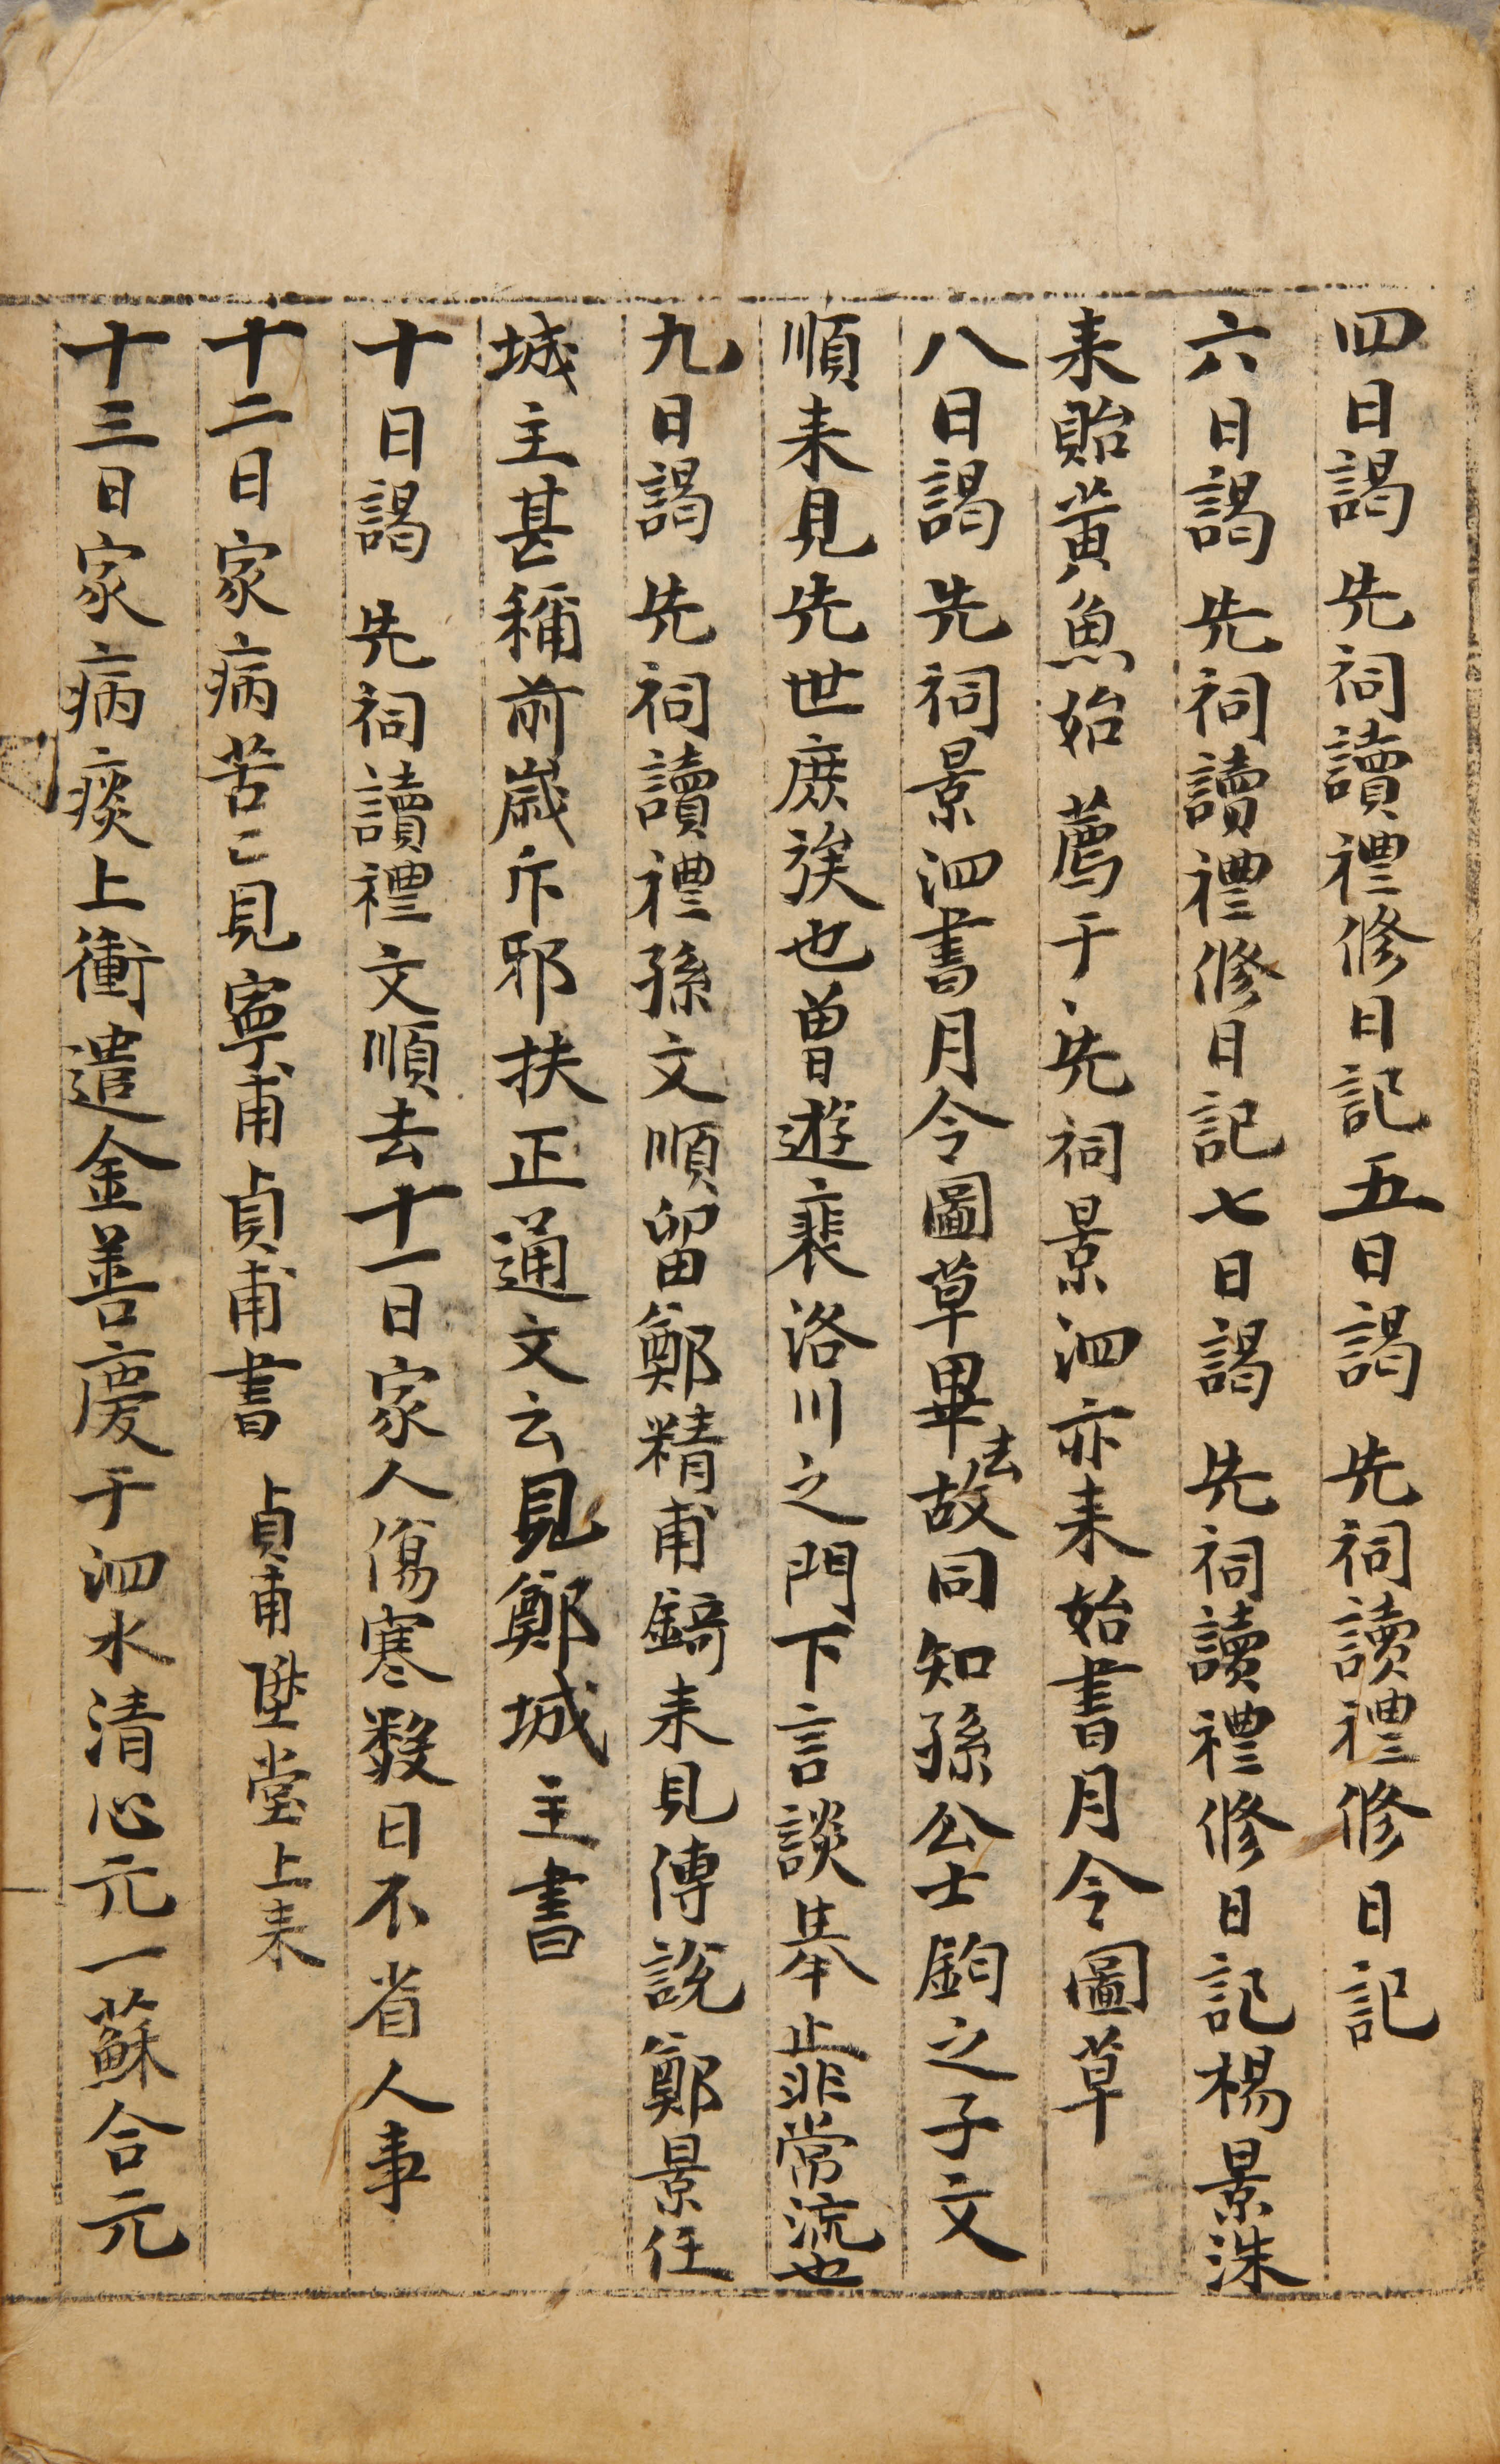 四日謁 先祠讀禮修日記五日謁 先祠讀禮修日記
六日謁 先祠讀禮修日記七日謁 先祠讀禮修日記楊景洙
来貽黃魚始 薦于 先祠景泗亦来始書月令圖草
八日謁 先祠景泗書月令圖草畢去故同知孫公士鈞之子文
順来見先世庶族也曾遊裴洛川之門下言談舉止非常流也
九日謁 先祠讀禮孫文順留鄭精甫錡来見傳說鄭景任
城主甚稱前歲斥邪扶正通文云見鄭城主書
十日謁 先祠讀禮文順去十一日家人傷寒數日不省人事
十二日家病苦〻見寧甫貞甫書 貞甫陞堂上来
十三日家病痰上衝遣金善慶于泗水清心元一蘇合元